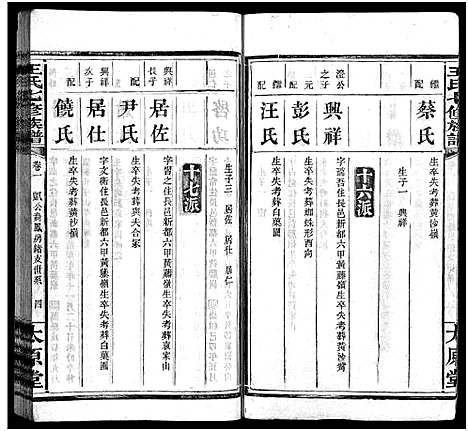 王氏七修族譜
太原堂
繼配
蔡氏
生卒失考葬黃沙嶺
生子一 興祥
十六派
澄公之子
興祥
字謨吾住長邑新都六甲黃藤嶺生卒失考葬黃沙嶺
元配
彭氏
生卒失考葬蜘蛛形西向
繼配
汪氏
生卒失考葬白菓園
生子三 居佐 居仕 居仁
十七派
興祥長子
居佐
字習之住長邑新都六甲黃藤嶺生卒失考葬袁家山
配
尹氏
生卒失考葬與夫合冢
興祥次子
居仕
字文衛住長邑新都六甲黃藤嶺生卒失考葬白菓園
配
饒氏
生卒失考葬黃沙嶺
王氏七修族譜
卷一
四
太原堂